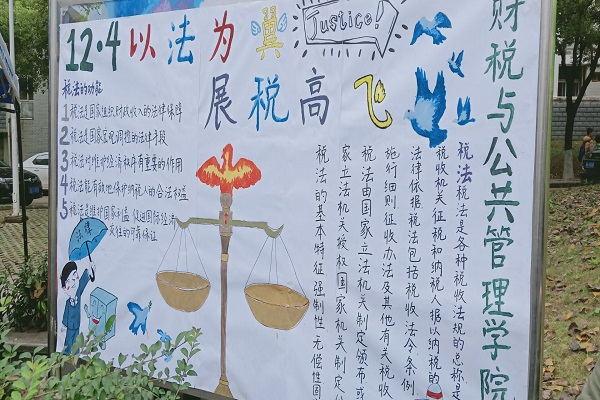 12·4以法为翼
Justice!
展税高飞
财税与公共管理学院
税法的功能
1税法是国家组织财政收入的法律保障
2税法是国家宏观调控的法律手段
3税法对维护经济秩序有重要的作用
4税法能有效地保护纳税人的合法权益
5税法是维护国家利益 促进国际经济
交往的可靠保证
税法税法是各种税收法规的总称是
税收机关征税和纳税人据以纳税的
法律依据税法包括税收法令条例
施行细则征收办法及其他有关税收
税法由国家立法机关制定颁布或
家立法机关授权国家机关制定
税法的基本特征强制性无偿性固